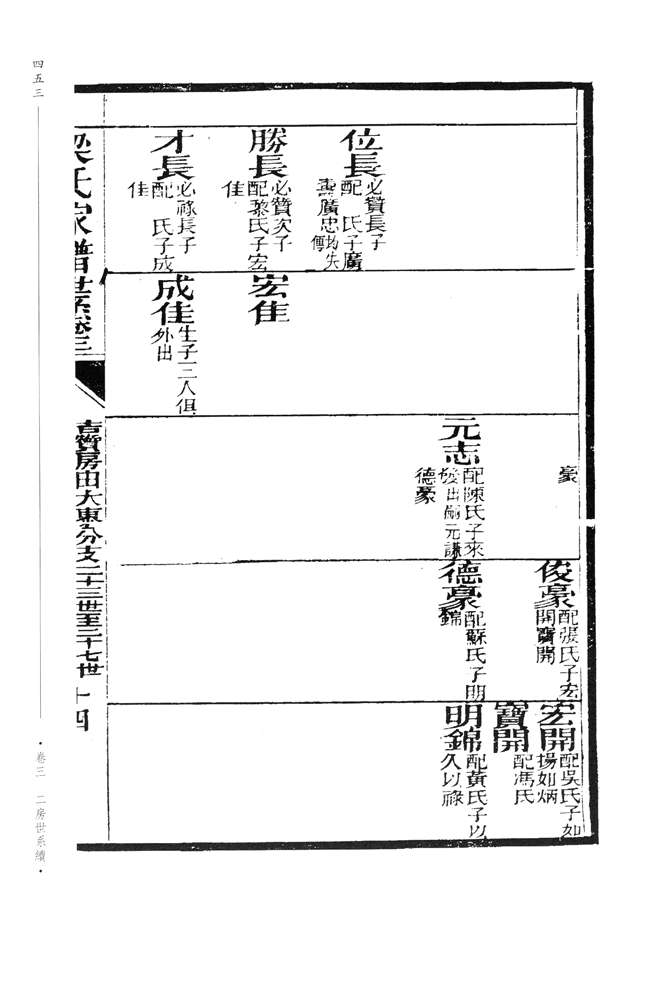 位長
必贊長子
配　氏子廣
壽廣忠均失
傳
勝長
必贊次子
配黎氏子宏
佳
才長
必祿長子
配　氏子成
佳
宏佳
成佳
生子二人俱
外出
豪
元志
配陳氏子來
發出嗣元謙
德豪
俊豪
配張氏子宏
開寶開
德豪
配蘇氏子明
錦
宏開
配吳氏子如
揚如炳
寶開
配馮氏
明錦
配黃氏子以
久以祿
梁氏家譜世系卷三
吉贊房由大東分支二十三世至二十七世
十四
四五三
·卷三　二房世系續·